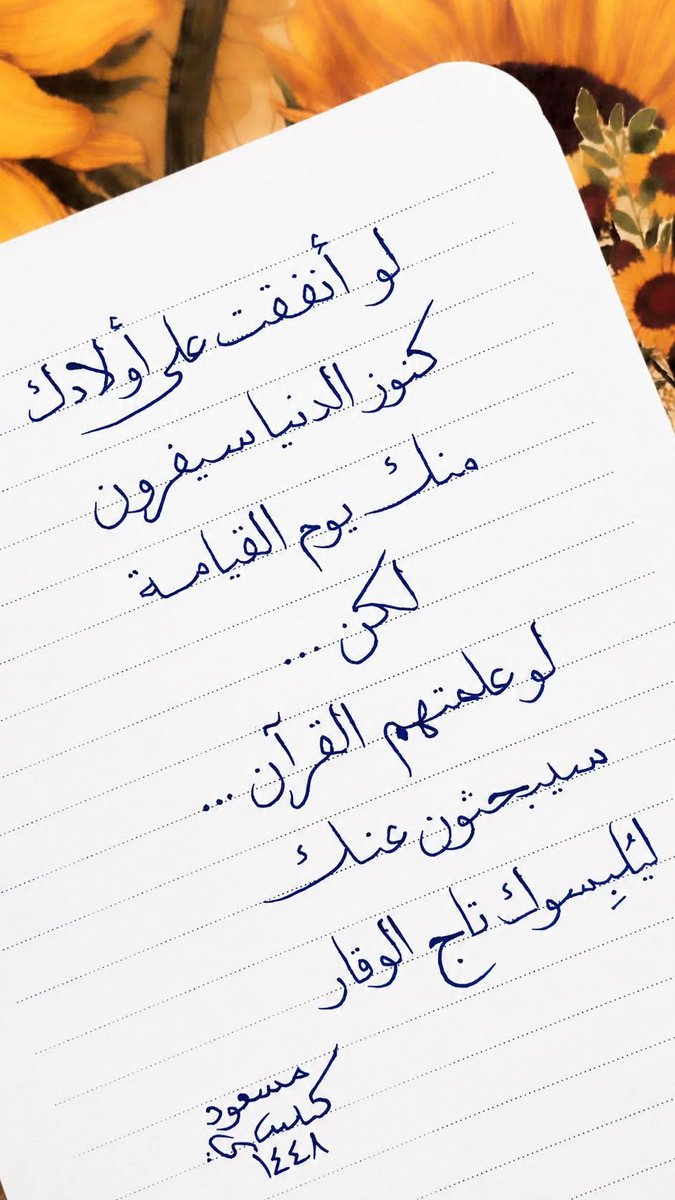 لو أنفقت على أولادك
كنوز الدنيا سيفرون
منك يوم القيامة
لكن ...
لو علمتهم القرآن ...
سيبحثون عنك
ليُلبِسوك تاج الوقار
مسعود
١٤٤٨